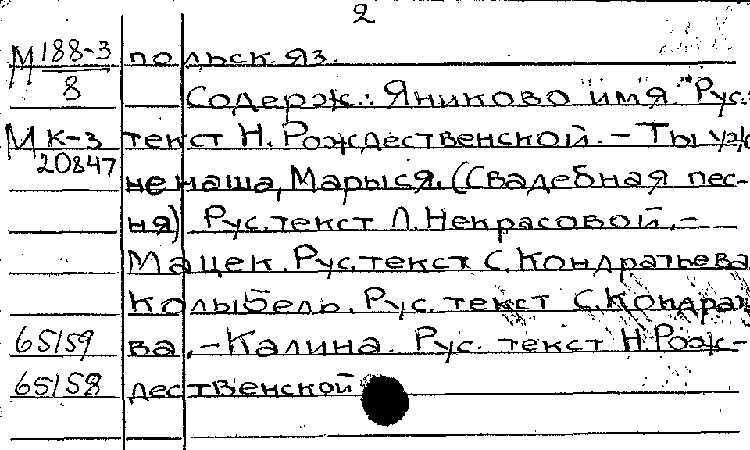 2
М 188-3 польск яз.
8 Содерж.: Яниково имя. Рус.
М к-3 текст Н. Рождественской. – Ты уж
20847 не наша, Марыся. (Свадебная пес-
ня) Рус. текст Л. Некрасовой. –
Мацек. Рус. текст С. Кондратьева
Колыбель. Рус. текст С. Кондрать
65159 ва. – Калина. Рус. текст Н. Рож-
65158 дественской